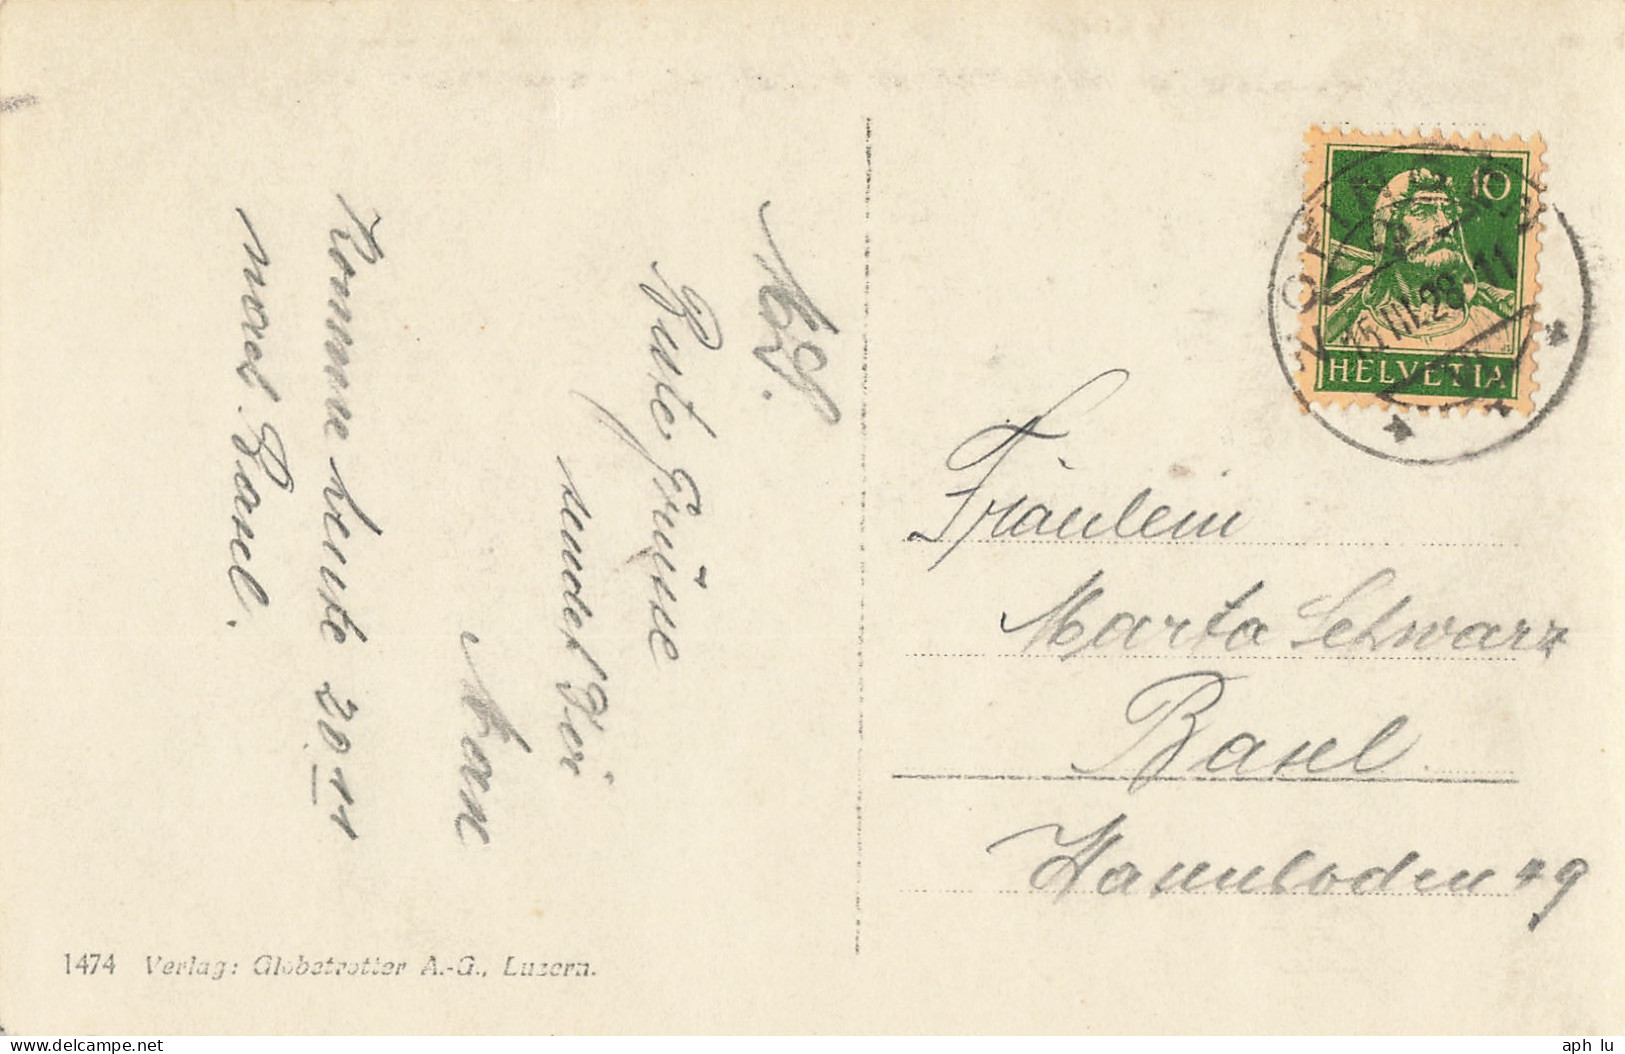 Beste Grüsse
sendet Dir
Komme heute 20.11
nach Basel.
1474 Verlag: Globetrotter A.-G., Luzern.
10
ZOFINGEN
15.III.28 11
HELVETIA
Fräulein
Marta Schwarz
Basel
49
aph lu